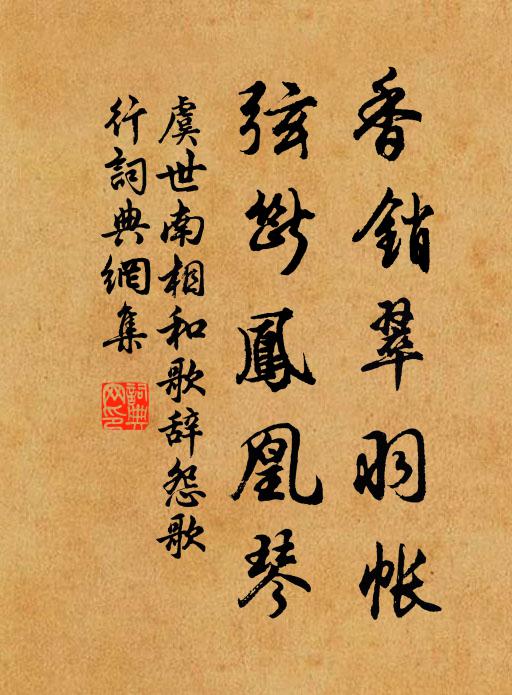 香銷翠羽帳
弦斷鳳凰琴
虞世南相和歌辞怨歌
行詞典網集
詞典
网印